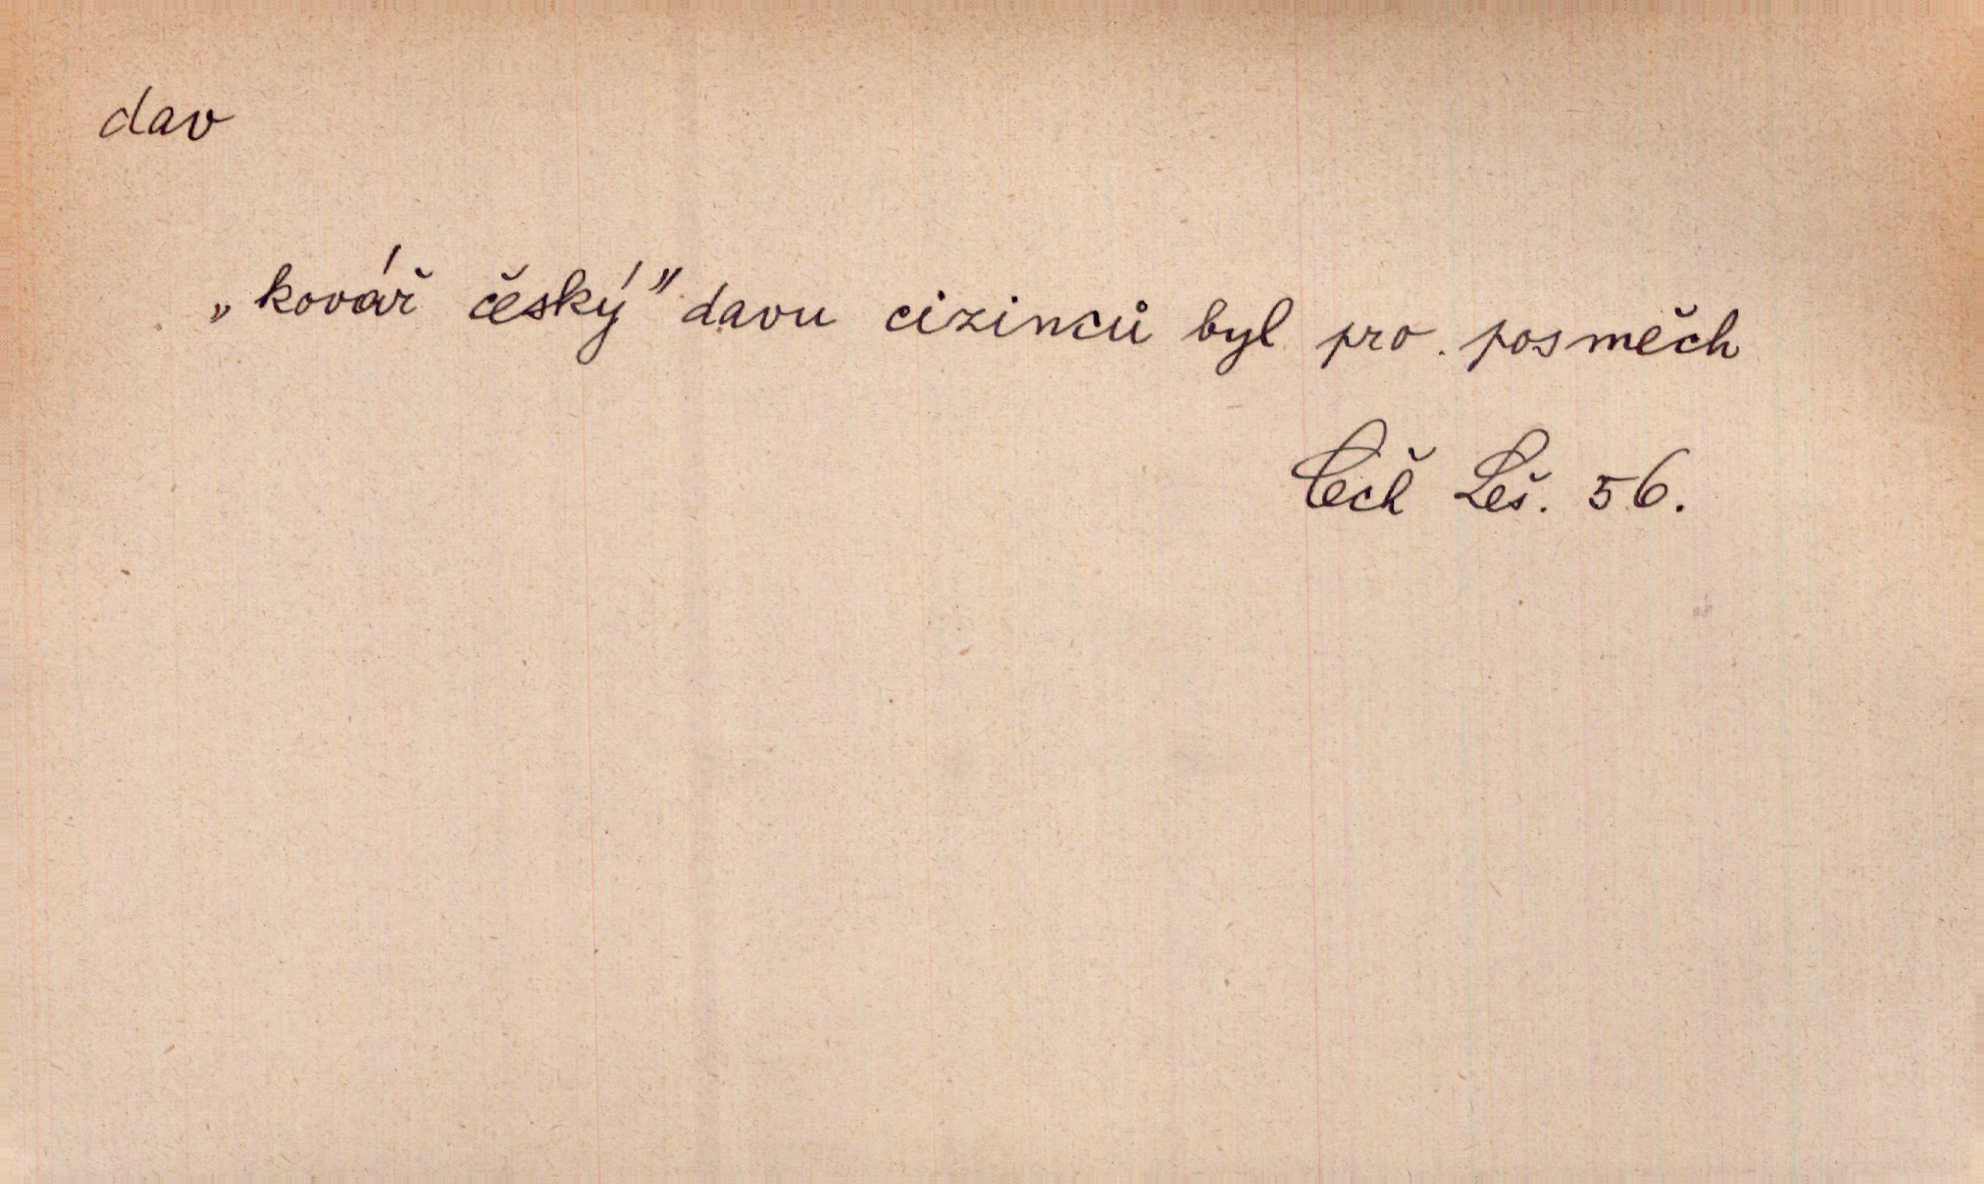 dav
„kovář český" davu cizinců byl pro posměch
Čech Leš. 56.